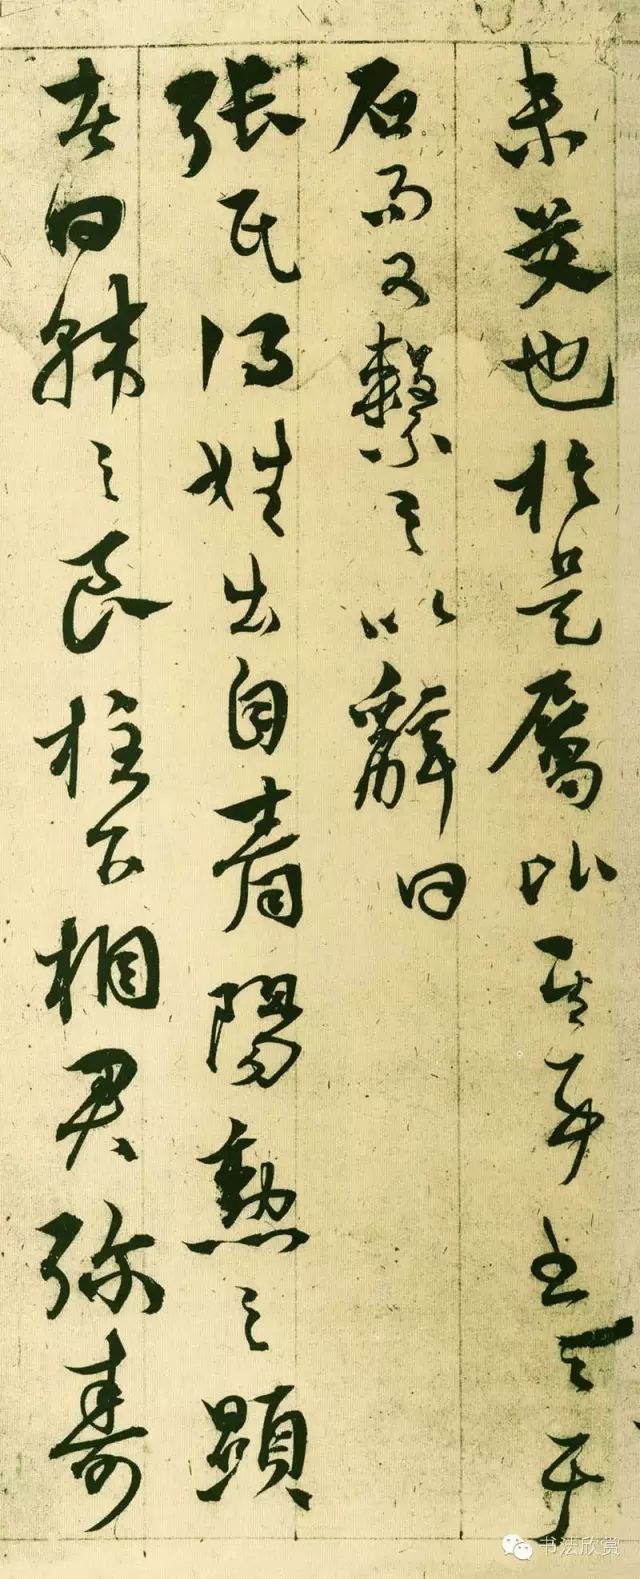 未艾也於是屬比其事書之于
石而又繫之以辭曰
張氏得姓出自青陽勲之顯
者曰韓之良柱下相君弥壽
书法欣赏